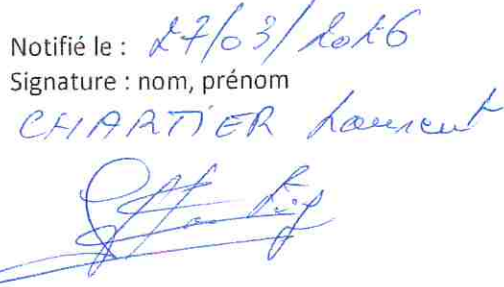 Notifié le : 27/03/2026
Signature : nom, prénom
CHARTIER Laurent